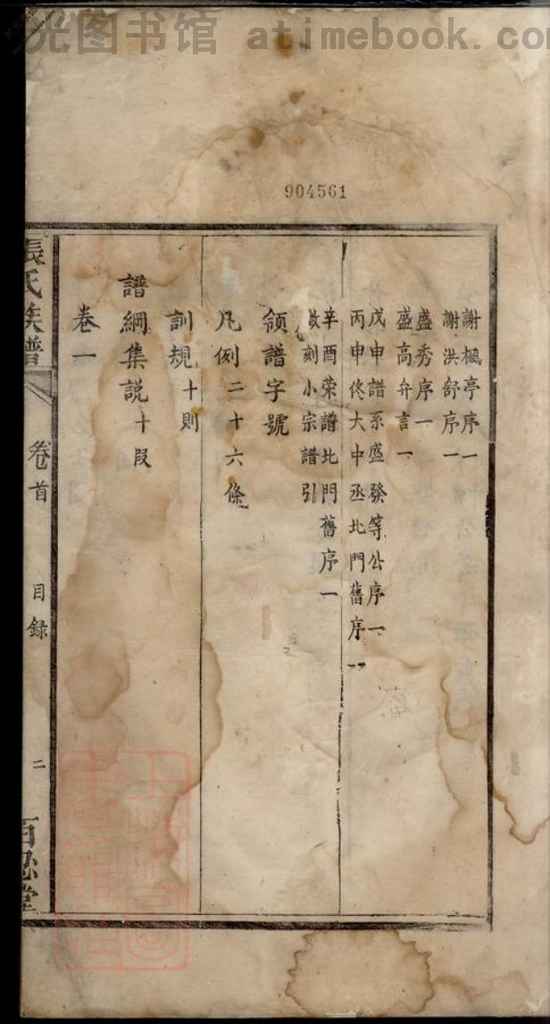 光图书馆 atimebook.co
904561
謝楓亭序一
謝洪舒序一
盛秀序一
盛高弁言一
戊申譜系盛發等公序一
丙申修大中丞北門舊序一
辛酉榮譜北門舊序一
刻小宗譜引
領譜字號
凡例二十六條
訓規十則
譜綱集説十段
卷一
張氏族譜
卷首
目錄
二
百忍堂